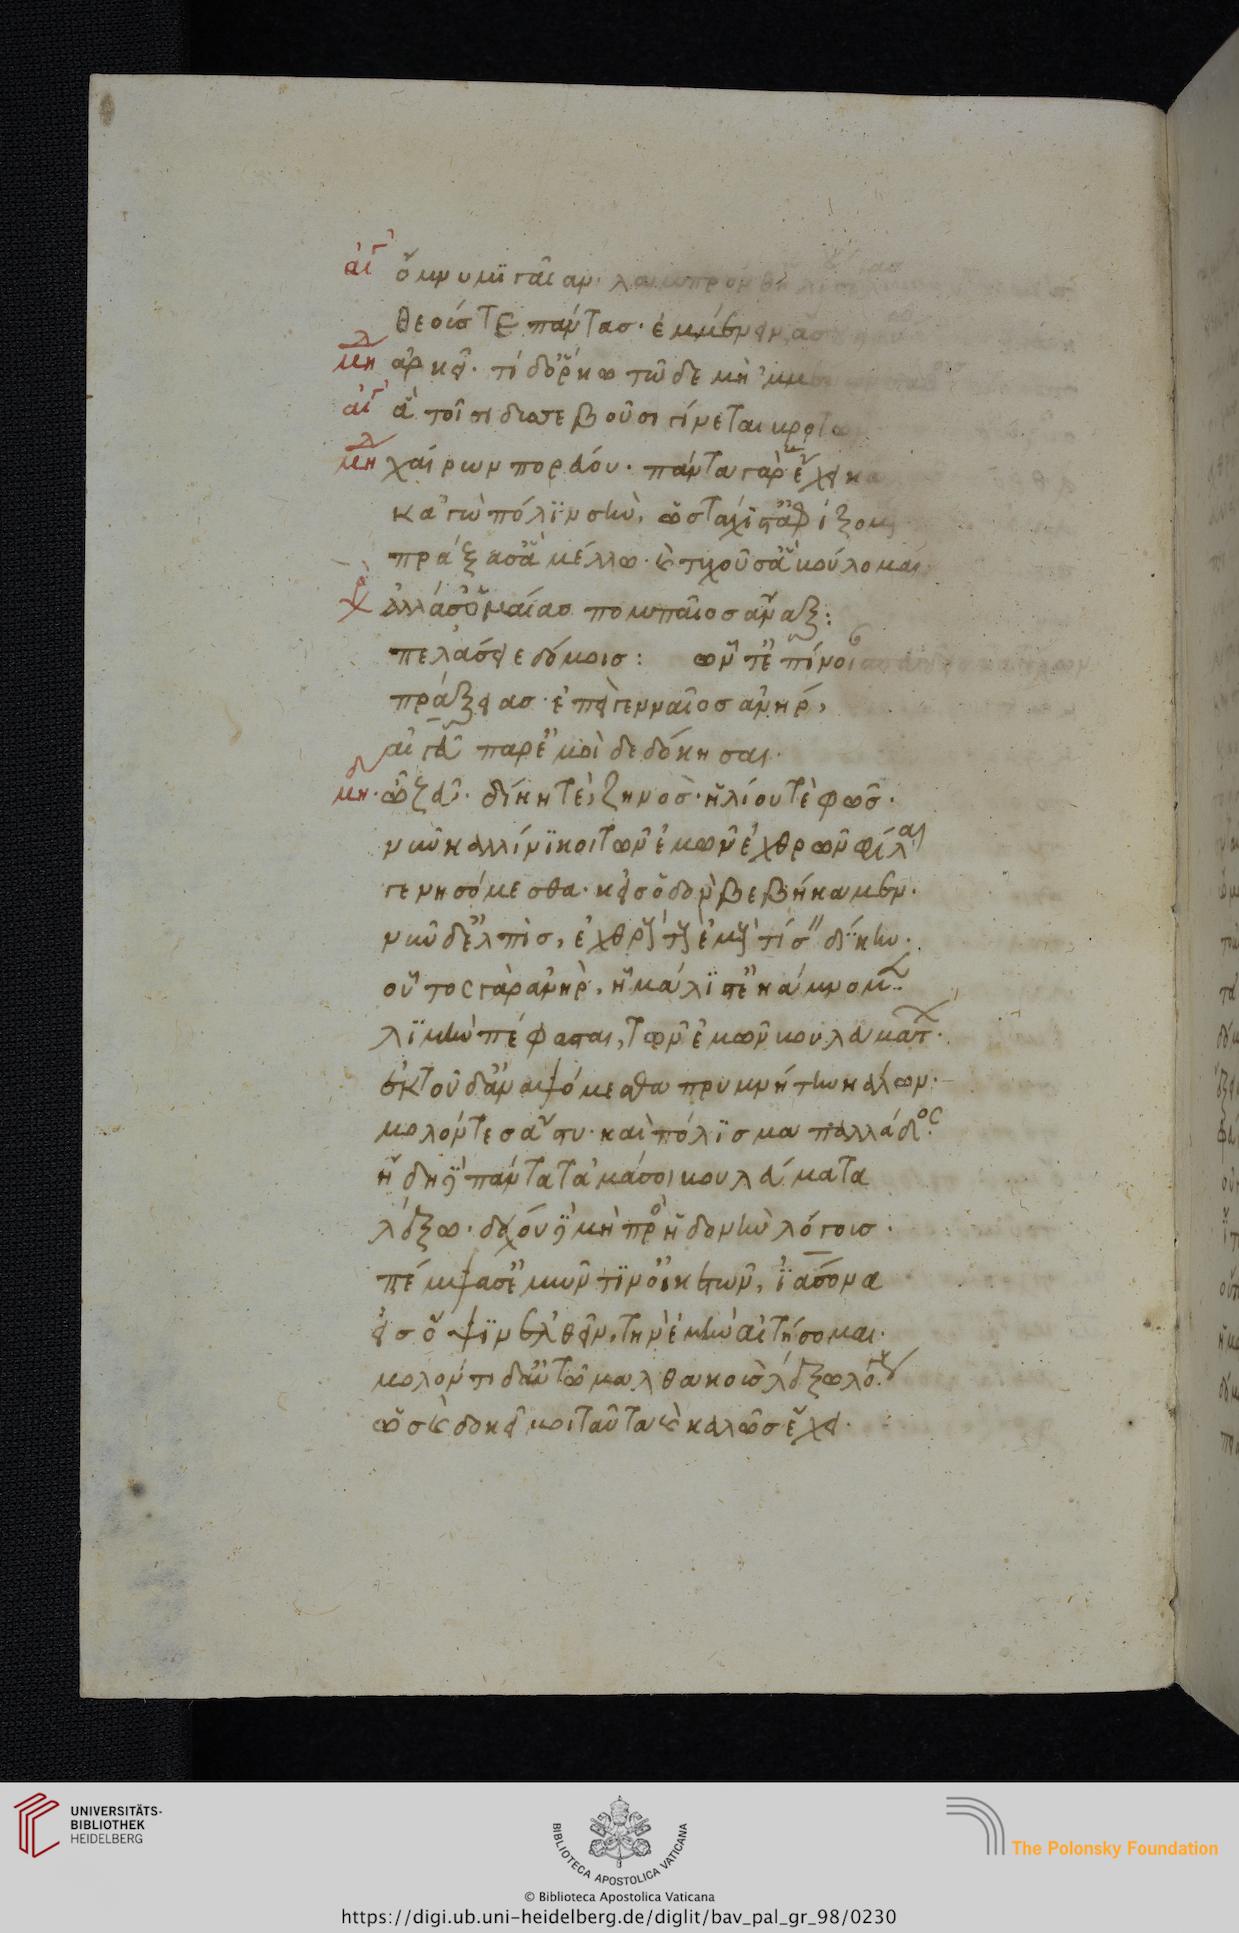 αἰγ ὄμνυμι γαῖαν· λαμπρὸν
θεούς τε πάντας· ἐμμένειν ἅ σου
μη ἀρκεῖ· τί δ' ὅρκῳ τῷδε μὴ 'μμ
αἰγ ἃ τοῖσι δυσσεβοῦσι γίνεται βροτῶν
μη χαίρων πορεύου· πάντα γὰρ καλῶς ἔχει
κἀγὼ πόλιν σὴν, ὡς τάχιστ' ἀφίξομαι
πράξασ' ἃ μέλλω· καὶ τυχοῦσ' ἃ βούλομαι
χρ ἀλλά σ' ὁ μαίας πομπαῖος ἄναξ:
πελάσειε δόμοις: ὧν τ' ἐπίνοιαν
πράξειας· ἐπεὶ γενναῖος ἀνήρ,
αἰγεῦ παρ' ἐμοὶ δεδόκησαι.
μηδ· ὦ ζεῦ· δίκη τε, ζηνὸς· ἡλίου τε φῶς·
νῦν καλλίνικοι τῶν ἐμῶν ἐχθρῶν φίλαι
γενησόμεσθα· κεἰς ὁδὸν βεβήκαμεν·
νῦν δ' ἐλπὶς, ἐχθροὺς τοὺς ἐμοὺς τίσειν δίκην·
οὗτος γὰρ ἀνὴρ, ᾗ μάλιστ' ἐκάμνομεν·
λιμὴν πέφανται, τῶν ἐμῶν βουλευμάτων·
ἐκ τοῦδ' ἀναψόμεσθα πρυμνήτην κάλων·
μολόντες ἄστυ· καὶ πόλισμα παλλάδος·
ἤδη δὲ πάντα τἀμά σοι βουλεύματα
λέξω· δέχου δὲ μὴ πρὸς ἡδονὴν λόγοις·
πέμψασ' ἐμῶν τιν' οἰκετῶν, ἰάσονα
εἰς ὄψιν ἐλθεῖν, τὴν ἐμὴν αἰτήσομαι·
μολόντι δ' αὐτῷ μαλθακοὺς λέξω λόγους
ὡς καὶ δοκεῖ μοι ταῦτα καὶ καλῶς ἔχει·
UNIVERSITÄTS-
BIBLIOTHEK
HEIDELBERG
BIBLIOTECA APOSTOLICA VATICANA
The Polonsky Foundation
© Biblioteca Apostolica Vaticana
https://digi.ub.uni-heidelberg.de/diglit/bav_pal_gr_98/0230